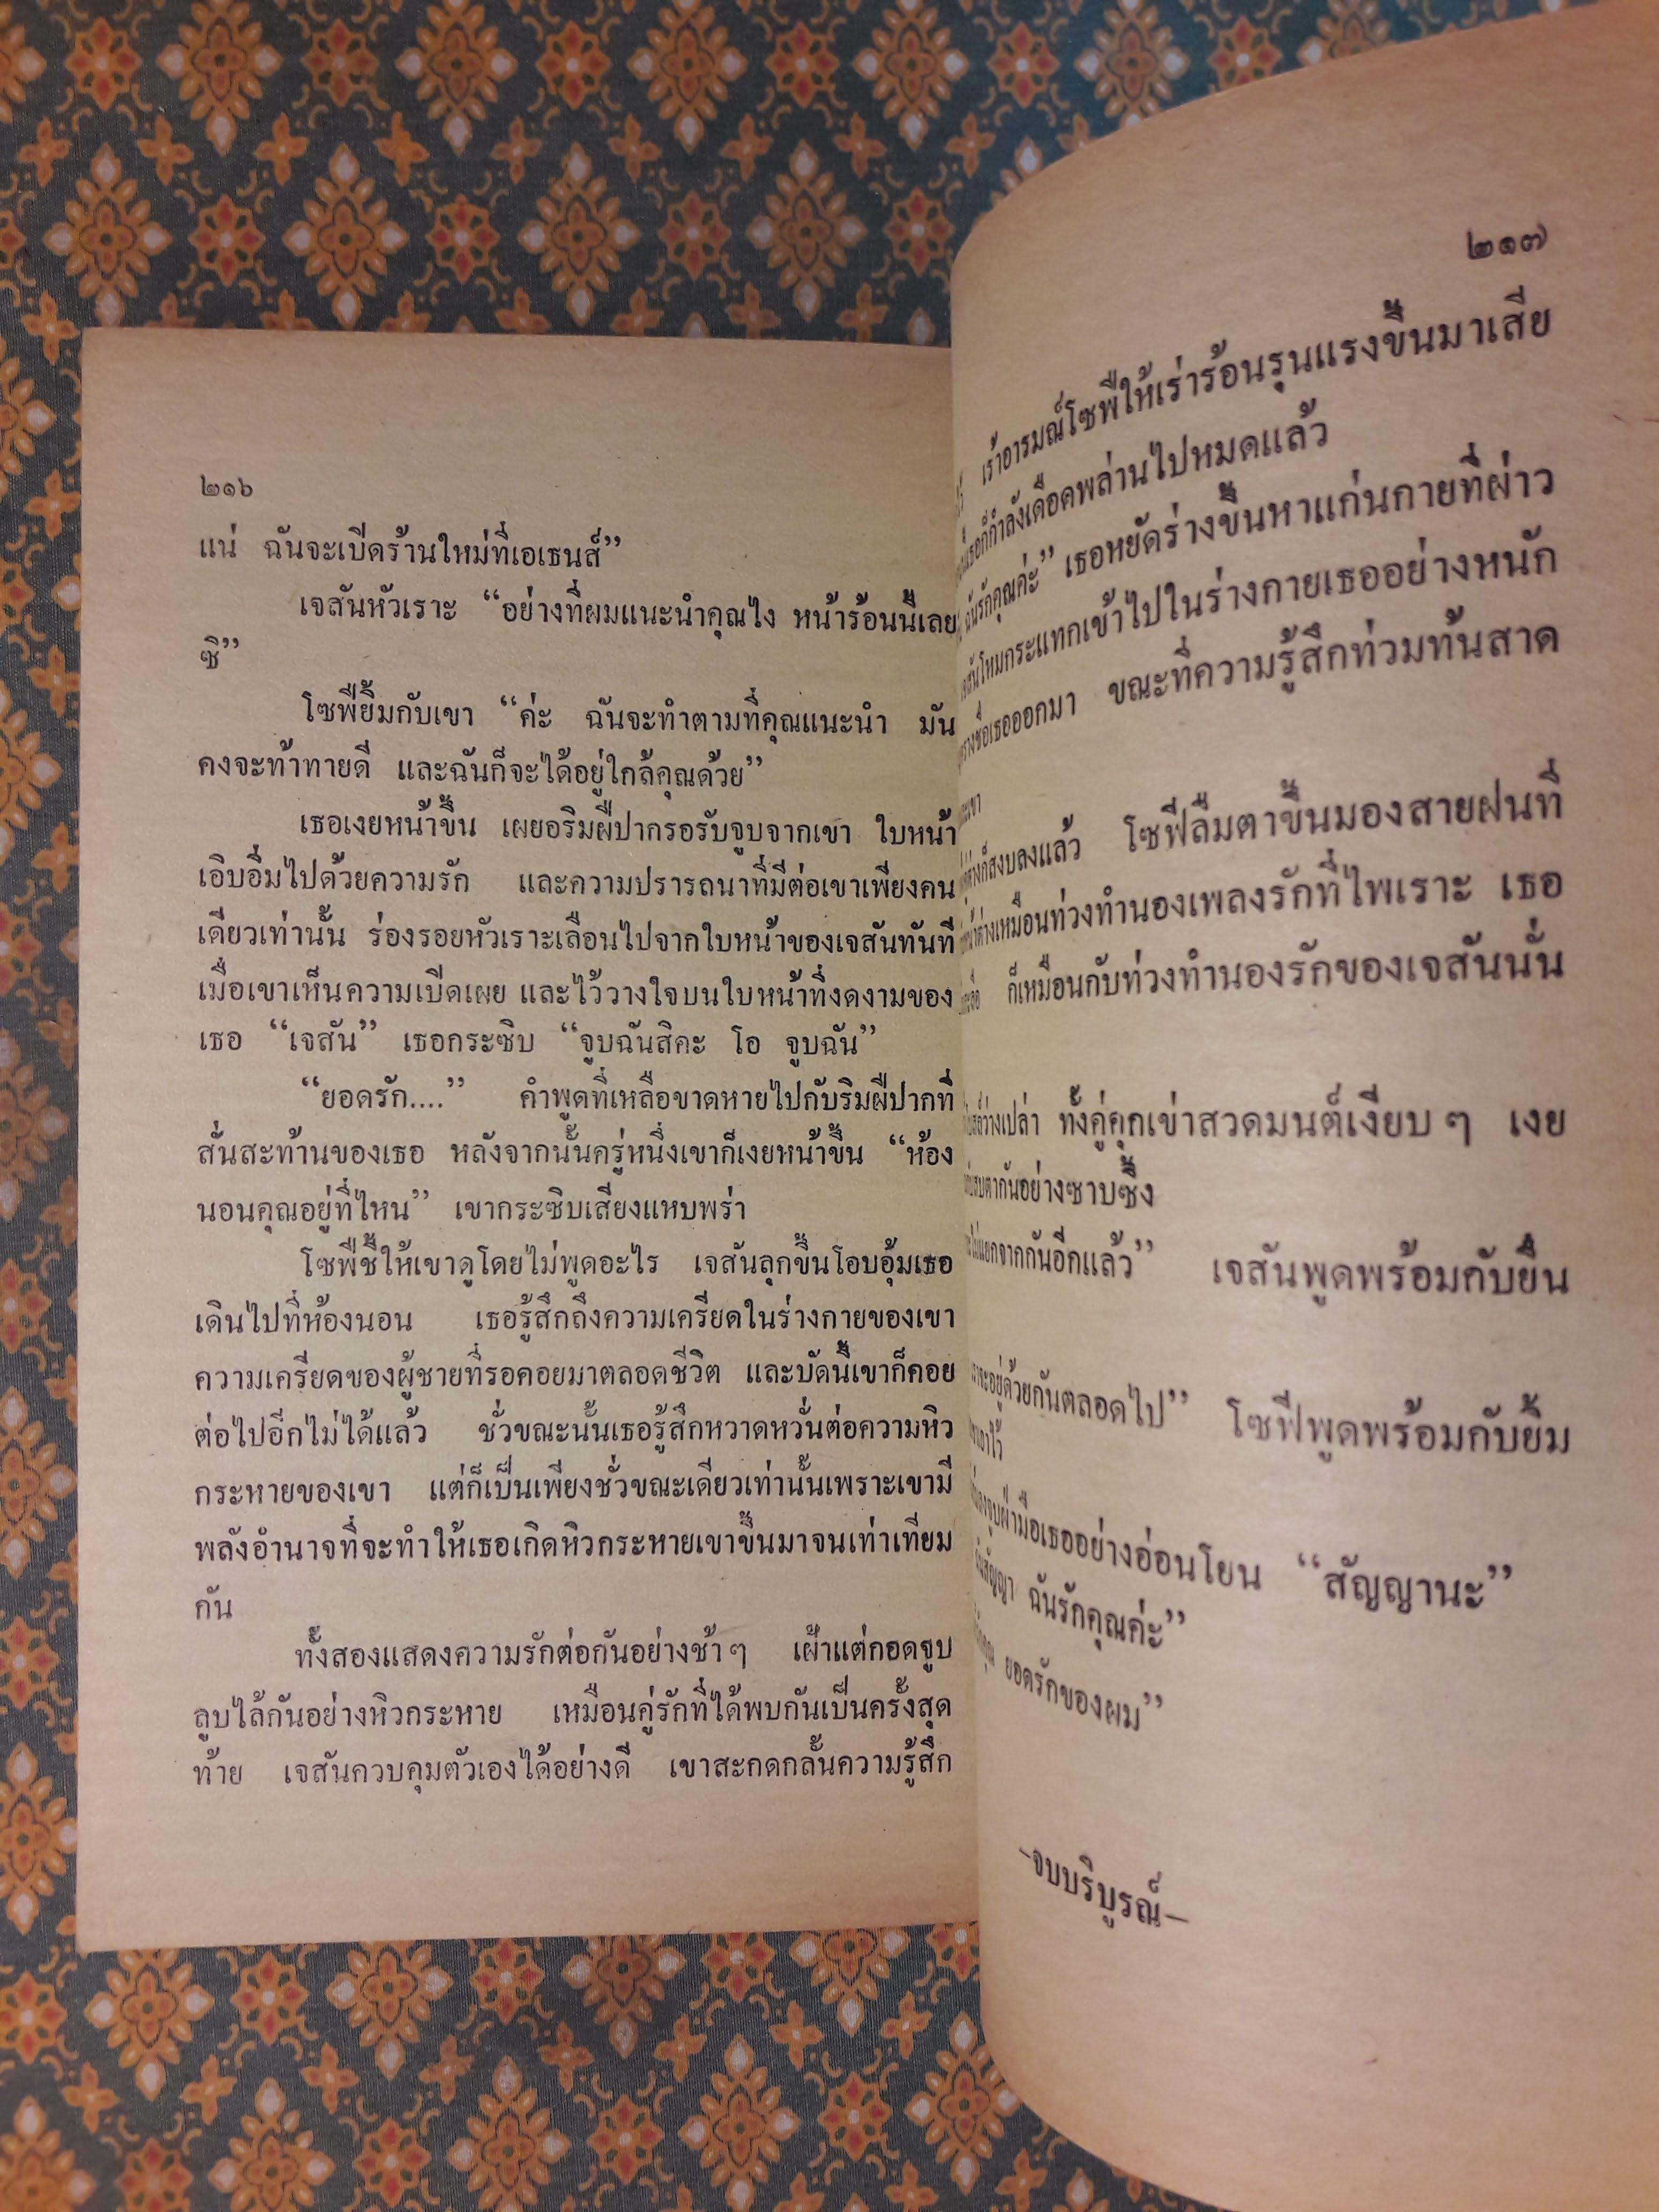 ๒๑๖
แน่ ฉันจะเปิดร้านใหม่ที่เอเธนส์”
เจสันหัวเราะ “อย่างที่ผมแนะนำคุณไง หน้าร้อนนี้เลย
ซิ”
โซฟียิ้มกับเขา “ค่ะ ฉันจะทำตามที่คุณแนะนำ มัน
คงจะท้าทายดี และฉันก็จะได้อยู่ใกล้คุณด้วย”
เธอเงยหน้าขึ้น เผยอริมฝีปากรอรับจูบจากเขา ใบหน้า
เอิบอิ่มไปด้วยความรัก และความปรารถนาที่มีต่อเขาเพียงคน
เดียวเท่านั้น ร่องรอยหัวเราะเลือนไปจากใบหน้าของเจสันทันที
เมื่อเขาเห็นความเปิดเผย และไว้วางใจบนใบหน้าที่งดงามของ
เธอ “เจสัน” เธอกระซิบ “จูบฉันสิคะ โอ จูบฉัน”
“ยอดรัก....” คำพูดที่เหลือขาดหายไปกับริมฝีปากที่
สั่นสะท้านของเธอ หลังจากนั้นครู่หนึ่งเขาก็เงยหน้าขึ้น “ห้อง
นอนคุณอยู่ที่ไหน” เขากระซิบเสียงแหบพร่า
โซฟีชี้ให้เขาดูโดยไม่พูดอะไร เจสันลุกขึ้นโอบอุ้มเธอ
เดินไปที่ห้องนอน เธอรู้สึกถึงความเครียดในร่างกายของเขา
ความเครียดของผู้ชายที่รอคอยมาตลอดชีวิต และบัดนี้เขาก็คอย
ต่อไปอีกไม่ได้แล้ว ชั่วขณะนั้นเธอรู้สึกหวาดหวั่นต่อความหิว
กระหายของเขา แต่ก็เป็นเพียงชั่วขณะเดียวเท่านั้นเพราะเขามี
พลังอำนาจที่จะทำให้เธอเกิดหิวกระหายเขาขึ้นมาจนเท่าเทียม
กัน
ทั้งสองแสดงความรักต่อกันอย่างช้า ๆ เฝ้าแต่กอดจูบ
ลูบไล้กันอย่างหิวกระหาย เหมือนคู่รักที่ได้พบกันเป็นครั้งสุด
ท้าย เจสันควบคุมตัวเองได้อย่างดี เขาสะกดกลั้นความรู้สึก
๒๑๗
เร้าอารมณ์โซฟีให้เร่าร้อนรุนแรงขึ้นมาเสีย
ก็กำลังเดือดพล่านไปหมดแล้ว
ฉันรักคุณค่ะ” เธอหยัดร่างขึ้นหาแก่นกายที่ผ่าว
โหมกระแทกเข้าไปในร่างกายเธออย่างหนัก
ชื่อเธอออกมา ขณะที่ความรู้สึกท่วมท้นสาด
ก็สงบลงแล้ว โซฟีลืมตาขึ้นมองสายฝนที่
เหมือนท่วงทำนองเพลงรักที่ไพเราะ เธอ
ก็เหมือนกับท่วงทำนองรักของเจสันนั่น
ว่างเปล่า ทั้งคู่คุกเข่าสวดมนต์เงียบ ๆ เงย
สบตากันอย่างซาบซึ้ง
ไม่แยกจากกันอีกแล้ว” เจสันพูดพร้อมกับยื่น
อยู่ด้วยกันตลอดไป” โซฟีพูดพร้อมกับยิ้ม
จูบฝ่ามือเธออย่างอ่อนโยน “สัญญานะ”
สัญญา ฉันรักคุณค่ะ”
ยอดรักของผม”
–จบบริบูรณ์–